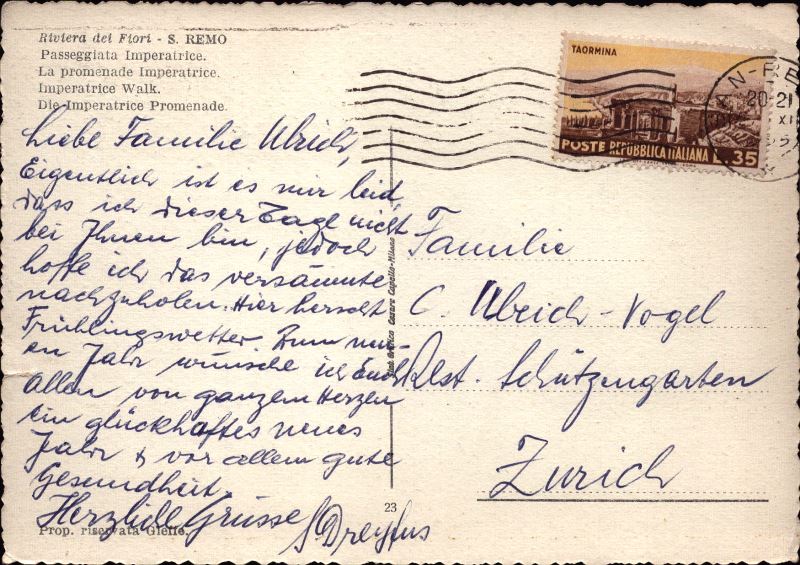 Riviera dei Fiori - S. REMO
Passeggiata Imperatrice.
La promenade Impératrice.
Imperatrice Walk.
Die Imperatrice Promenade.
Liebe Familie Ulrich,
Eigentlich ist es mir leid,
dass ich dieser Tage nicht
bei Ihnen bin, jedoch
hoffe ich das versäumte
nachzuholen. Hier herscht
Frühlingswetter. Zum neu-
en Jahr wünsche ich Euch
allen von ganzem Herzen
ein glückhaftes neues
Jahr & vor allem gute
Gesundheit
Herzliche Grüsse
Dreyfus
Prop. riservata Gieffe.
23
Cesare Capello-Milano
TAORMINA
POSTE REPUBBLICA ITALIANA L.35
20-21
XII
Familie
C. Ulrich-Vogel
Rest. Schützengarten
Zürich